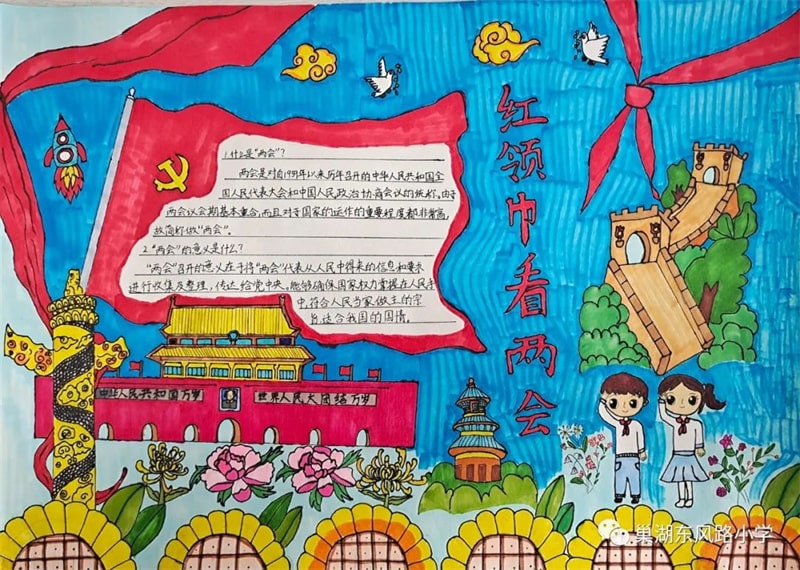 红领巾看两会
1.什么是“两会”?
两会是对自1959年以来历年召开的中华人民共和国全
国人民代表大会和中国人民政治协商会议的统称。由于
两会议会期基本重合,而且对于国家的运作的重要程度都非常高,
故简称做“两会”。
2.“两会”的意义是什么?
“两会”召开的意义在于将“两会”代表从人民中得来的信息和要求
进行收集及整理,传达给党中央。能够确保国家权力掌握在人民手
中,符合人民当家做主的宗
旨,适合我国的国情。
中华人民共和国万岁
世界人民大团结万岁
巢湖东风路小学